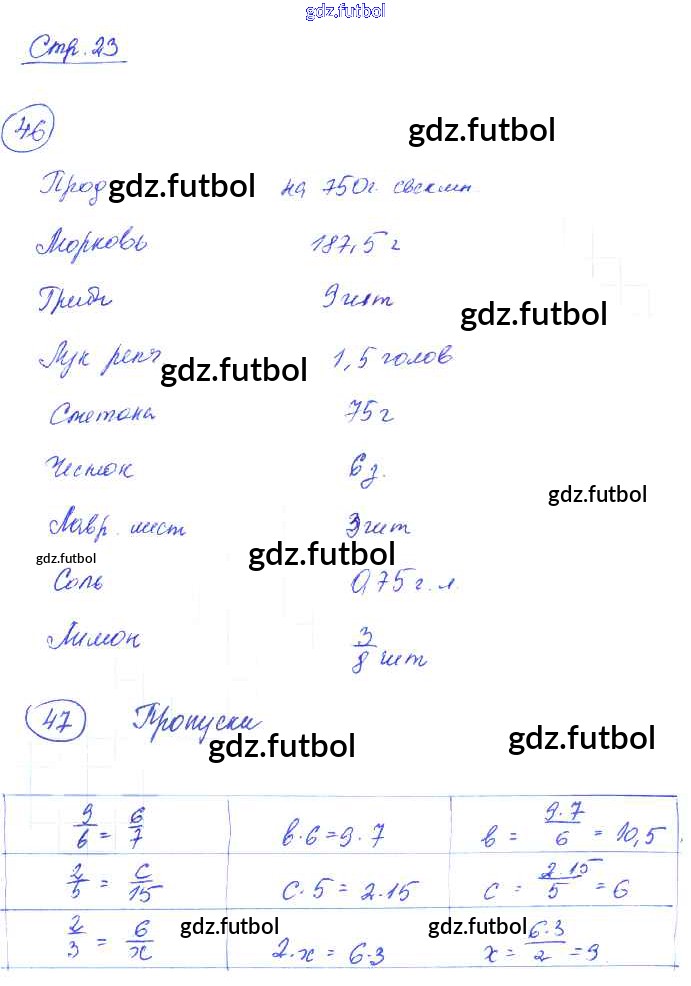 gdz.futbol
Стр. 23
46 gdz.futbol
Прод gdz.futbol на 750г. свеклы
Морковь 187,5 г
Грибы 9 шт
gdz.futbol
Лук репч gdz.futbol 1,5 голов
Сметана 75 г
Чеснок 6 д.
gdz.futbol
Лавр. лист 3 шт
gdz.futbol gdz.futbol
Соль 0,75 г. л.
Лимон 3/8 шт
47 Пропуски
gdz.futbol gdz.futbol
9/6 = 6/7 в·6=9·7 в = 9·7/6 = 10,5
2/5 = с/15 с·5 = 2·15 с = 2·15/5 = 6
2/3 = 6/x gdz.futbol 2·x = 6·3 gdz.futbol x = 6·3/2 = 9